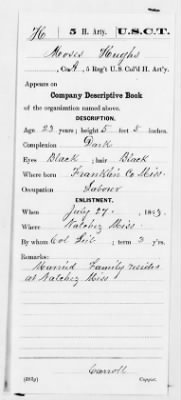 H 5 H. Arty. U.S.C.T.
Moses Hughs
, Co. A, 5 Reg't U.S. Col'd H. Art'y.
Appears on
Company Descriptive Book
of the organization named above.
DESCRIPTION.
Age 23 years; height 5 feet 5 inches.
Complexion Dark
Eyes Black; hair Black
Where born Franklin Co Miss.
Occupation Labour
ENLISTMENT.
When July 27, 1863.
Where Natchez Miss.
By whom Col ; term 3 y'rs.
Remarks:
Married Family resides
at Natchez Miss
Carroll
(383g) Copyist.